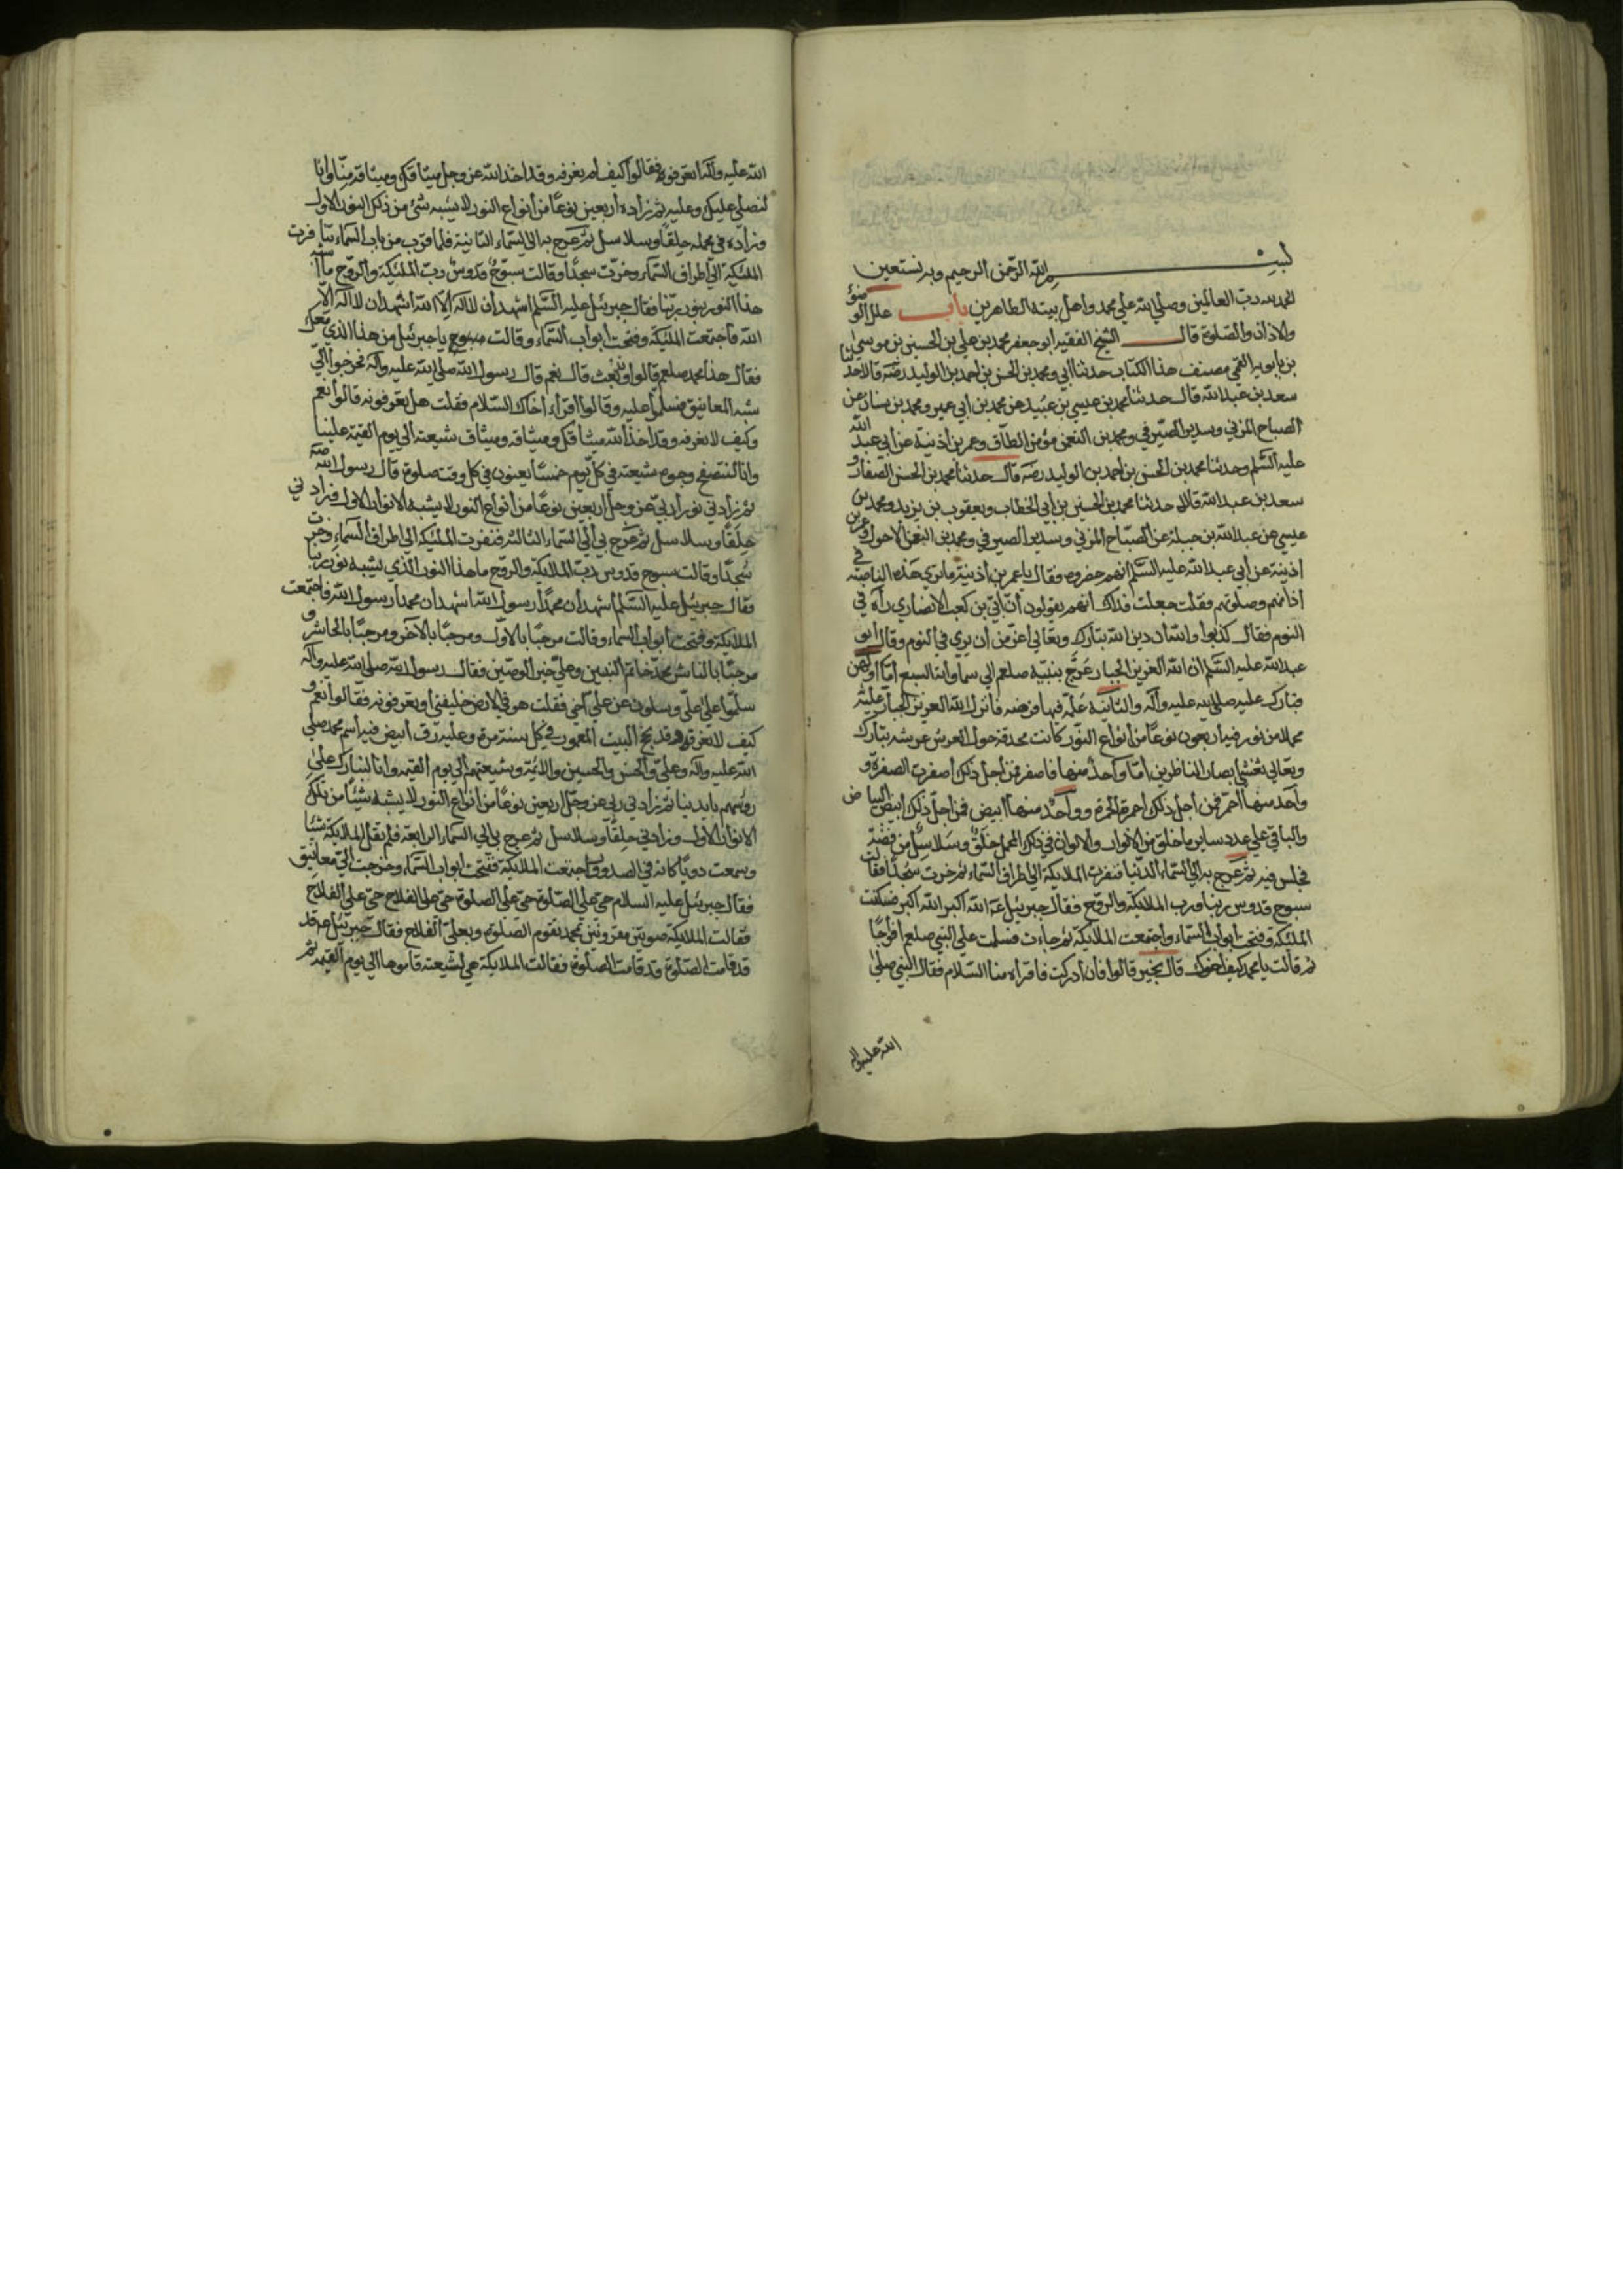 بسم الله الرحمن الرحيم وبه نستعين
الحمد لله رب العالمين وصلي الله علي محمد واهل بيته الطاهرين باب علل الوضوء
ولاذان والصلوة قال الشيخ الفقيه ابو جعفر محمد بن علي بن الحسين بن موسي
بن بابويه القمي مصنف هذا الكتاب حدثنا ابي ومحمد بن الحسن بن احمد بن الوليد رضه قالا حدثنا
سعد بن عبد الله قال حدثنا محمد بن عيسي بن عبيد عن محمد بن ابي عمير ومحمد بن سنان عن
الصباح المزني وسدير الصيرفي ومحمد بن النعمن مؤمن الطاق وعمر بن اذنية عن ابي عبد الله
عليه السلم وحدثنا محمد بن الحسن بن احمد بن الوليد رضه قال حدثنا محمد بن الحسن الصفار و
سعد بن عبد الله قالا حدثنا محمد بن الحسين بن ابي الخطاب ويعقوب بن يزيد ومحمد بن
عيسي عن عبد الله بن جبلة عن الصباح المزني وسدير الصيرفي ومحمد بن النعمن الاحول وعمر بن
اذينة عن ابي عبد الله عليه السلم انهم حضروه فقال يا عمر بن اذينة ما تري هذه الناصبة في
اذانهم وصلوتهم فقلت جعلت فداك انهم يقولون ان ابي بن كعب الانصاري راه في
النوم فقال كذبوا والله ان دين الله تبارك وتعالي اعز من ان يري في النوم وقال ابو
عبد الله عليه السلم ان الله العزيز الجبار عرج بنبيه صلعم الي سماواته السبع اما اولهن
فبارك عليه صلي الله عليه وآله والثانية علمه فيها فرضه فانزل الله العزيز الجبار عليه
محملا من نور فيه اربعون نوعا من انواع النور كانت محدقة حول العرش عرشه تبارك
وتعالي تغشي ابصار الناظرين اما واحد منها فاصفر فمن اجل ذلك اصفرت الصفرة و
واحد منها احمر فمن اجل ذلك احمرة الحمرة وواحد منها ابيض فمن اجل ذلك ابيض البياض
والباقي علي عدد ساير ما خلق من الانوار والالوان في ذلك المحمل حلق وسلاسل من فضة
فجلس فيه ثم عرج به الي السماء الدنيا فنفرت الملايكة الي اطراف السماء ثم خرت سجدا فقالت
سبوح قدوس ربنا ورب الملايكة والروح فقال جبرئيل عه الله اكبر الله اكبر فسكتت
الملئكة وفتحت ابواب السماء واجتمعت الملايكة ثم جاءت فسلمت علي النبي صلعم افواجا
ثم قالت يا محمد كيف اخوك قال بخير قالوا فان ادركته فاقراه منا السلام فقال النبي صلي
الله عليه وآله
الله عليه وآله اتعرفونه فقالوا كيف لم نعرفه وقد اخذ الله عز وجل ميثاقك وميثاقه منا وانا
لنصلي عليك وعليه ثم زاده اربعين نوعا من انواع النور لا يشبه شئ من ذلك النور الاول
وزاده في محمله حلقا وسلاسل ثم عرج به الي السماء الثانية فلما قرب من باب السماء تنافرت
الملئكة الي اطراف السماء وخرت سجدا وقالت سبوح قدوس رب الملئكة والروح ما اشبه
هذا النور بنور ربنا فقال جبرئيل عليه السلم اشهد ان لا اله الا الله اشهد ان لا اله الا
الله فاجتمعت الملئكة وفتحت ابواب السماء وقالت يا جبرئيل من هذا الذي معك
فقال هذا محمد صلعم قالوا وقد بعث قال نعم قال رسول الله صلي الله عليه وآله فخرجوا الي
شبه المعانيق فسلموا عليه وقالوا اقراء اخاك السلام فقلت هل تعرفونه قالوا نعم
وكيف لا نعرفه وقد اخذ الله ميثاقك وميثاقه وميثاق شيعته الي يوم القيمة علينا
وانا لنتصفح وجوه شيعته في كل يوم خمسا يعنون في كل وقت صلوة قال رسول الله صلي
ثم زادني ربي عز وجل اربعين نوعا من انواع النور لا يشبه الانوار الاول فزادني
حلقا وسلاسل ثم عرج بي الي السماء الثالثه فنفرت الملئكة الي اطراف السماء وخرت
سجدا وقالت سبوح قدوس رب الملايكة والروح ما هذا النور الذي يشبه نور ربنا
فقال جبريئل عليه السلم اشهد ان محمدا رسول الله اشهد ان محمدا رسول الله فاجتمعت
الملايكة وفتحت ابواب السماء وقالت مرحبا بالاول ومرحبا بالآخر ومرحبا بالحاشر و
مرحبا بالناشر محمد خاتم النبيين وعلي خير الوصيين فقال رسول الله صلي الله عليه وآله
سلموا علي وسلوني عن علي اخي فقلت هو في الارض خليفتي اوتعرفونه فقالوا نعم و
كيف لا نعرفه وقد نحج البيت المعمور في كل سنة مرة وعليه رق ابيض فيه اسم محمد صلي
الله عليه وآله وعلي والحسن والحسين والائية وشيعتهم الي يوم القيمه وانا لنبارك علي
روسهم بايدينا ثم زادني ربي عز وجل اربعين نوعا من انواع النور لا يشبه شيئا من تلك
الانوار الاول وزادني حلقا وسلاسل ثم عرج بي الي السماء الرابعة فلم تقل الملايكة شيئا
وسمعت دويا كانه في الصدور واجتمعت الملايكة ففتحت ابواب السماء وخرجت الي معانيق
فقال جبرئيل عليه السلام حي علي الصلوة حي علي الصلوة حي علي الفلاح حي علي الفلاح
فقالت الملايكة صوتين مقرونين بمحمد تقوم الصلوة وبعلي الفلاح فقال جبرئيل عه قد
قد قامت الصلوة قد قامت الصلوة فقالت الملايكة هي لشيعته قاموها الي يوم القيمه ثم